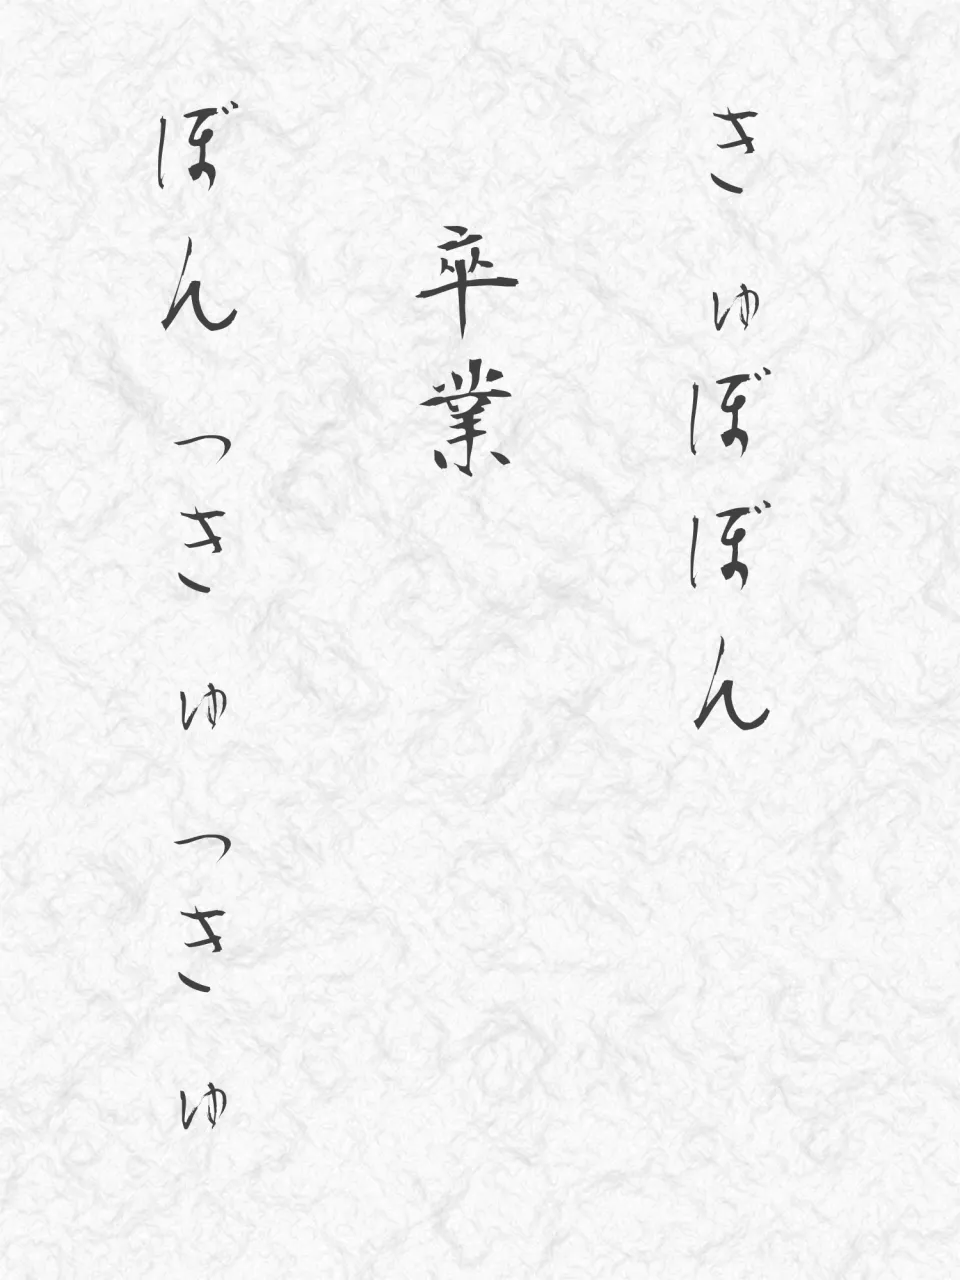 きゅぼぼん
卒業
ぼんっきゅっきゅ